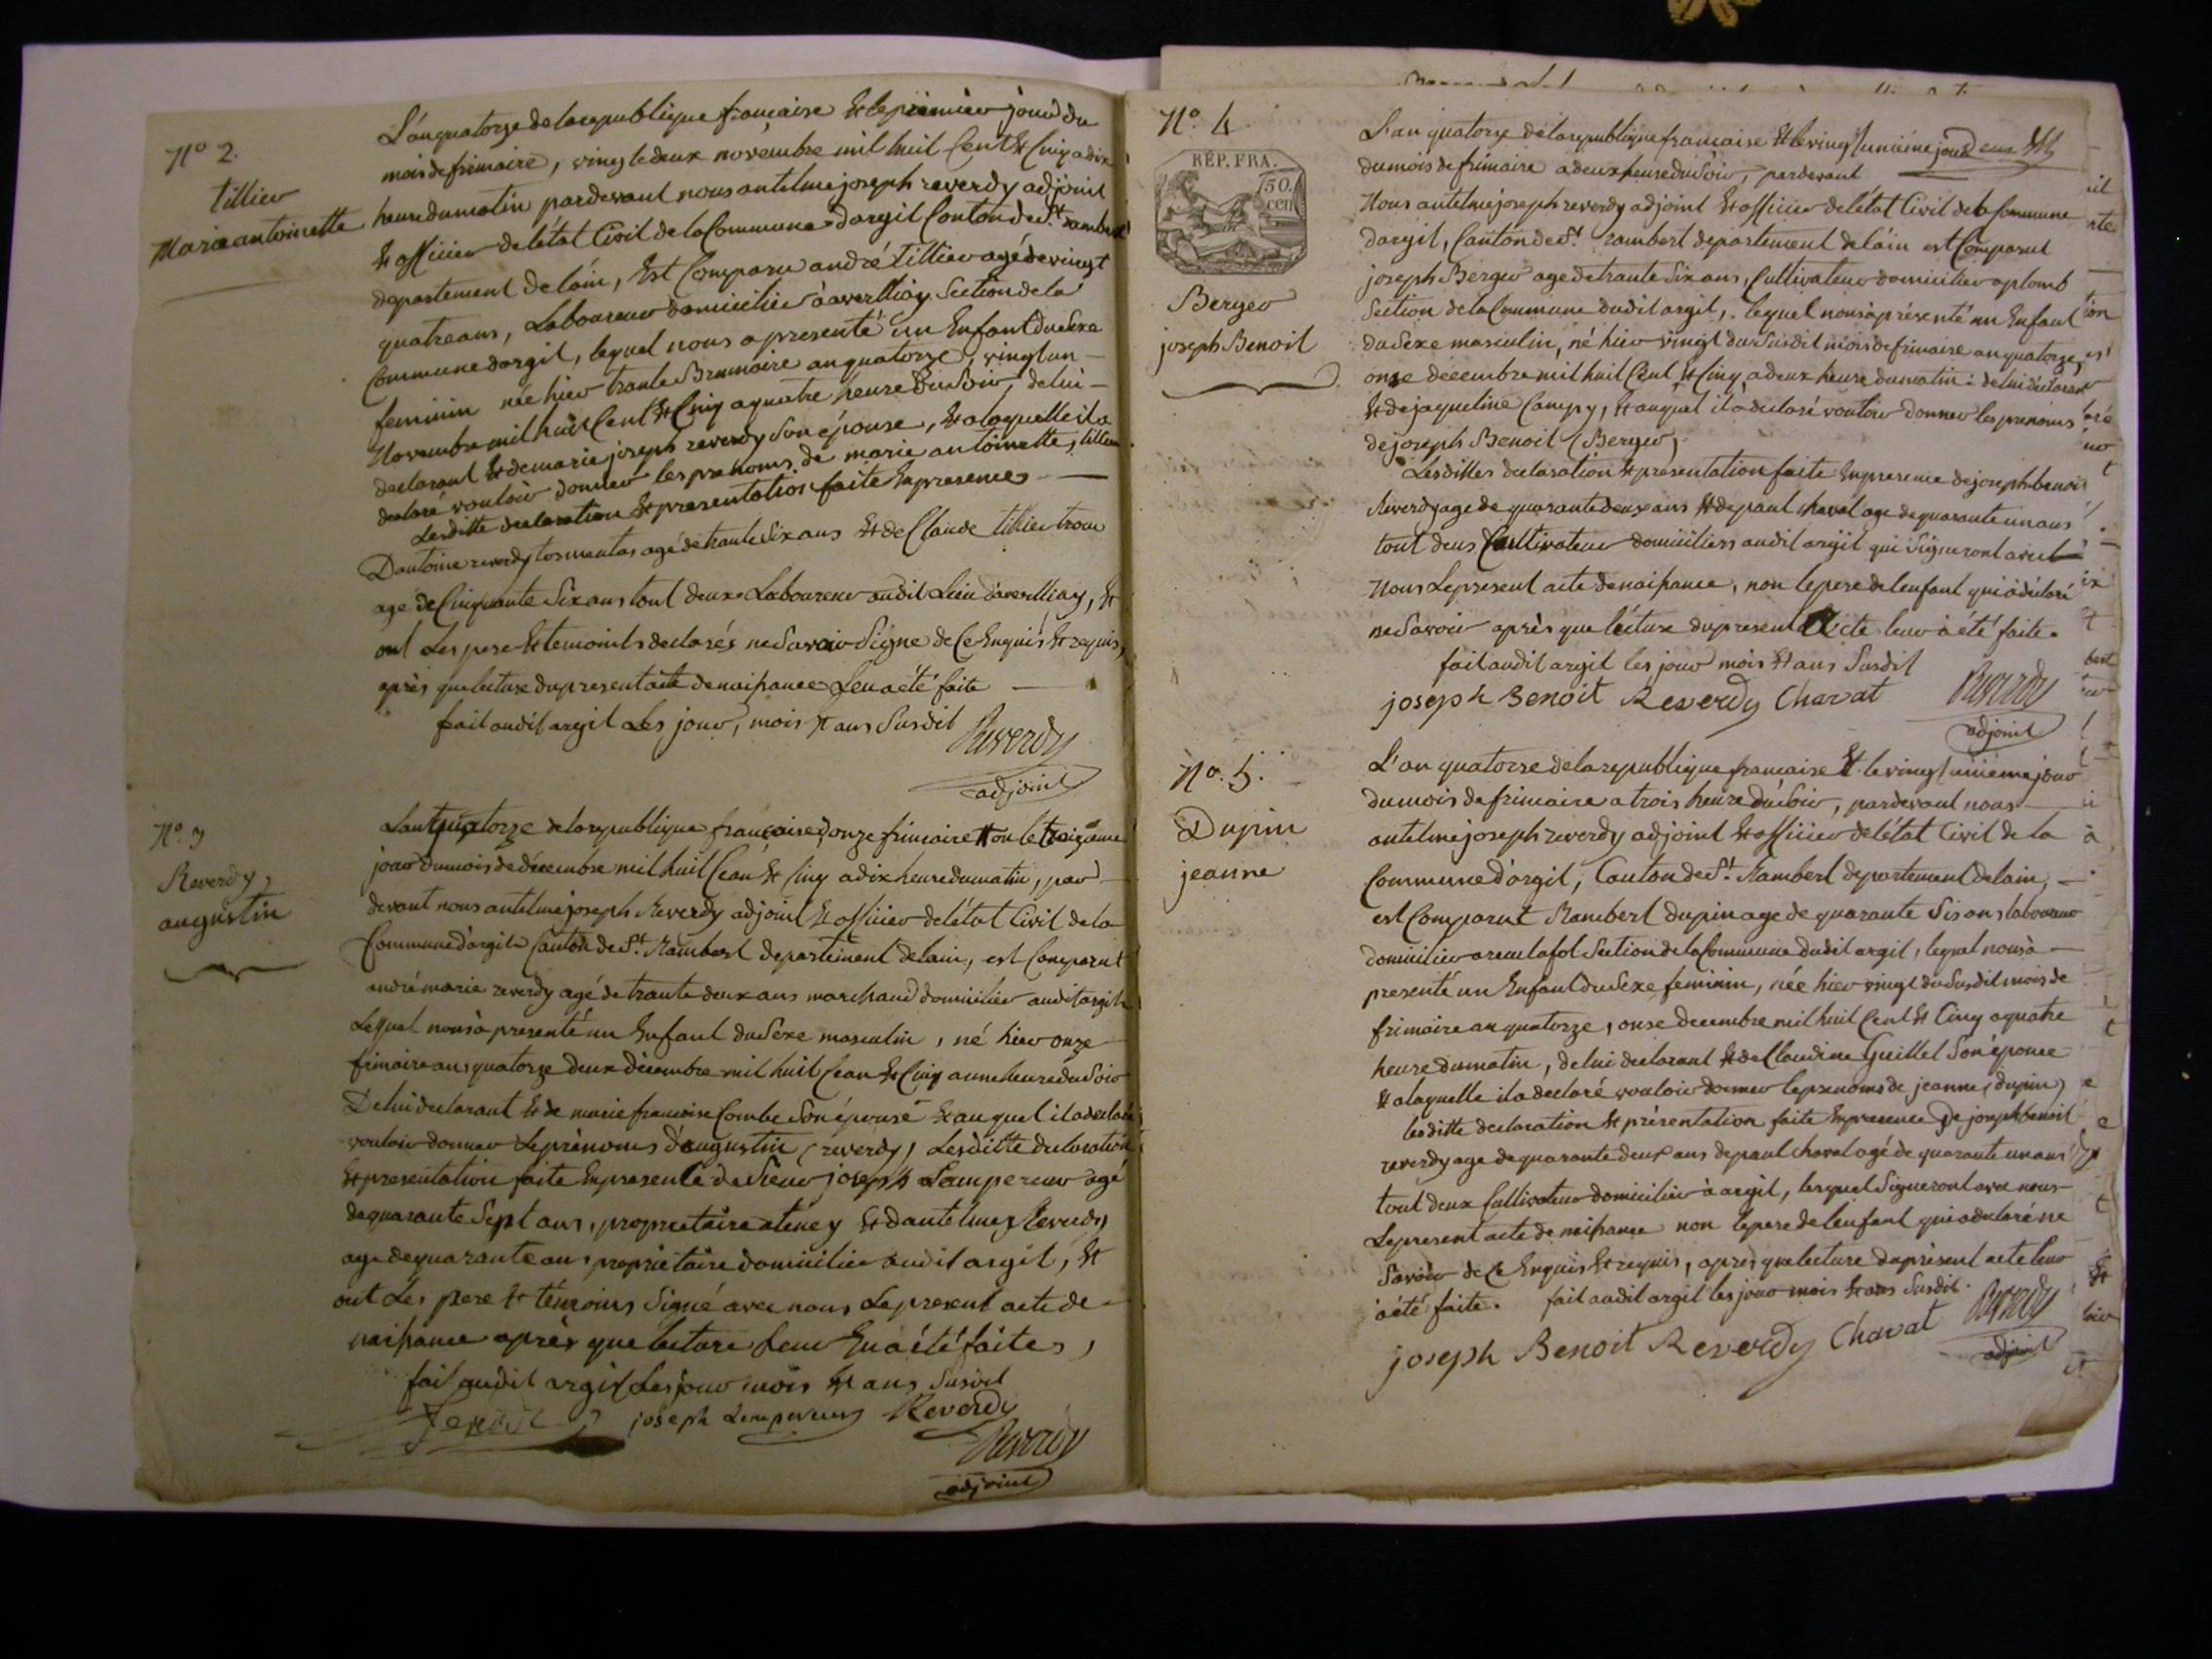 N° 2.
tillier
Marie antoinette
L'an quatorze de la republique francaise et le premier jour du
mois de frimaire, vingt deux novembre mil huit Cent et Cinq a dix
heure du matin pardevant nous antelme joseph reverdy adjoint
et officier de létat Civil de la Commune dargil Canton de St. rambert
departement de lain, Est Comparu andré tillier agé de vingt
quatre ans, Laboureur domicilié à averlliay Section de la
Commune dargil, lequel nous a presenté un Enfant du Sexe
feminin née hier trante Brumaire an quatorze, vingt un
Novembre mil huit Cent et Cinq a quatre heure du Soir, de lui
declarant et de marie joseph reverdy Son épouse, et a laquelle il a
declaré vouloir donner les prenoms de marie antoinette, tillier
Lesditte declaration et presentation faite En presence
Dantoine reverdy tormentas agé de trante Six ans et de Claude tillier
age de Cinquante Six ans tout deux Laboureur audit Lieu d'averlliay, et
ont Les pere et temoints declarés ne Savoir Signe de Ce Enquis et requis,
après que lecture du present acte de naissance Leu a été faite
fait audit argil Les jour, mois et ans Susdit
Reverdy
adjoint
N° 3
Reverdy,
augustin
Lan quatorze de la republique française, douze frimaire ou le troizieme
jour du mois de décembre mil huit Cean et Cinq a dix heure du matin, par
devant nous antelme joseph Reverdy adjoint et officier de létat Civil de la
Commune d'argil Canton de St. Rambert departement de lain, est Comparut
andré marie reverdy agé de trante deux ans marchand domicilier audit argil
Lequel nous à presenté un Enfant du Sexe masculin, né hier onze
frimaire ans quatorze deux décembre mil huit Cean et Cinq a une heure du Soir
De lui declarant et de marie francoise Combe Son épouse et au quel il a declaré
vouloir donner Le prénoms d'augustin (reverdy) Lesditte declaration
et presentation faite En presence de Sieur joseph Lampereur agé
de quarante Sept ans, proprietaire a teney et dantelme Reverdy
age de quarante ans proprietaire domicilier audit argil, et
ont Les pere et témoins Signé avec nous Le present acte de
naissance après que lecture Leur En à été faites,
fait audit argil Les jour mois et ans Susdit
joseph Lempereur Reverdy
Reverdy
adjoint
N°. 4
RÉP. FRA.
50.
cen
Berger
joseph Benoit
L'an quatorze de la republique francaise et le vingt unième jour
du mois de frimaire a deux heure du Soir, pardevant
Nous antelme joseph reverdy adjoint et officier de létat Civil de la Commune
dargil, Canton de St. rambert departement de lain est Comparut
joseph Berger age de trante Six ans, Cultivateur domicilier aplomb
Section de la Commune dudit argil, lequel nous à présenté un Enfant
du Sexe masculin, né hier vingt du Susdit mois de frimaire an quatorze,
onze decembre mil huit Cent et Cinq, a deux heure du matin: de lui declarant
et de jaqueline Campy, et auquel il à declaré vouloir donner les prenoms
de joseph Benoit (Berger)
Lesdittes declaration et présentation faite En presence de joseph benoit
Reverdy age de quarante deux ans et de paul chavat age de quarante un ans
tout deus Cultivateur domiciliers audit argil qui Signeront avec
Nous Le present acte de naissance, non le pere de lenfant qui a déclaré
ne Savoir après que lecture du present Acte leur à été faite.
fait audit argil les jour mois et ans Susdit
joseph Benoit Reverdy Chavat Reverdy
adjoint
N°. 5.
Dupin
jeanne
L'an quatorze de la republique francaise et le vingt unième jour
du mois de frimaire a trois heure du Soir, pardevant nous
antelme joseph reverdy adjoint et officier de létat Civil de la
Commune d'argil, Canton de St. Rambert departement de lain,
est Comparut Rambert dupin age de quarante Six ans laboureur
domicilier Section de la Commune dudit argil, lequel nous à
presenté un Enfant du Sexe feminin, née hier vingt du Susdit mois de
frimaire an quatorze, onse decembre mil huit Cent et Cinq a quatre
heure du matin, de lui declarant et de Claudine Guillet Son épouse
et a laquelle il a declaré vouloir donner le prenoms de jeanne (dupin)
lesditte declaration et présentation faite En presence De joseph benoit
reverdy age de quarante deux ans de paul chavat agé de quarante un ans
tout deux Cultivateur domicilier à argil, lesquel Signeront avec nous
Le present acte de naissance non le pere de lenfant qui a declaré ne
Savoir de Ce Enquis et requis, après que lecture du present acte leur
à été faite. fait audit argil les jour mois et ans Susdit.
joseph Benoit Reverdy Chavat Reverdy
adjoint